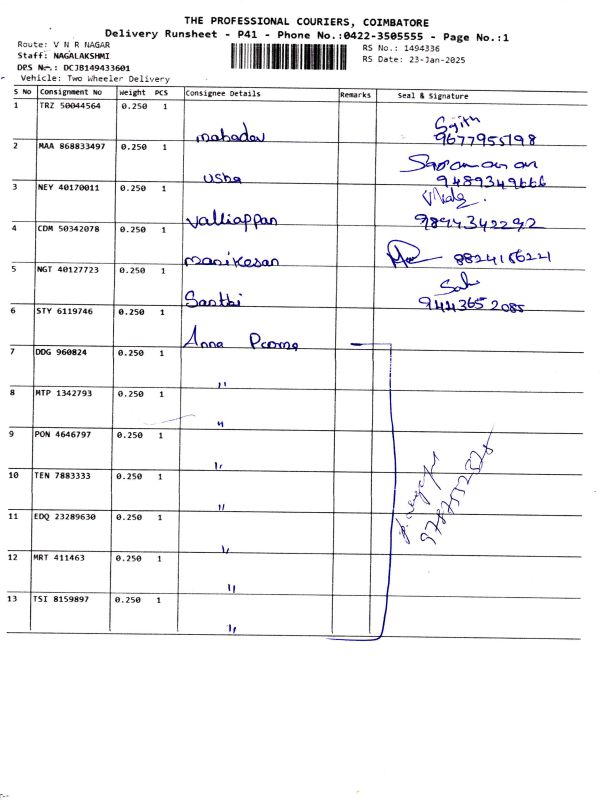 THE PROFESSIONAL COURIERS, COIMBATORE
Delivery Runsheet - P41 - Phone No.:0422-3505555 - Page No.:1
Route: V N R NAGAR
RS No.: 1494336
Staff: NAGALAKSHMI
RS Date: 23-Jan-2025
DRS No.: DCJB149433601
Vehicle: Two Wheeler Delivery
S No Consignment No Weight PCS Consignee Details Remarks Seal & Signature
1 TRZ 50044564 0.250 1 mahadev 9677955198
2 MAA 868833497 0.250 1 usha 9489349666
3 NEY 40170011 0.250 1 valliappan 9894342292
4 CDM 50342078 0.250 1 manikesan 8824156221
5 NGT 40127723 0.250 1 Santhi 9443652085
6 STY 6119746 0.250 1 Anna
7 DDG 960824 0.250 1 "
8 MTP 1342793 0.250 1 "
9 PON 4646797 0.250 1 "
10 TEN 7883333 0.250 1 "
11 EDQ 23289630 0.250 1 "
12 MRT 411463 0.250 1 "
13 TSI 8159897 0.250 1 "